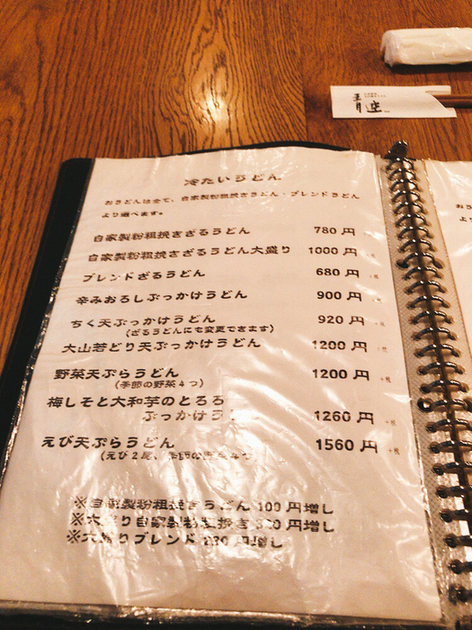 冷たいうどん
おうどんは全て、自家製粉粗挽きうどん・ブレンドうどん
より選べます。
自家製粉粗挽きざるうどん 780 円
自家製粉粗挽きざるうどん大盛り 1000 円
ブレンドざるうどん 680 円
辛みおろしぶっかけうどん 900 円
ちく天ぶっかけうどん 920 円
(ざるうどんにも変更できます)
大山若どり天ぶっかけうどん 1200 円
野菜天ぷらうどん 1200 円
(季節の野菜4つ)
梅しそと大和芋のとろろ
ぶっかけう 1260 円
えび天ぷらうどん 1560 円
(えび2尾、季節の野菜4つ
※自家製粉粗挽きうどん 100 円増し
※大盛り自家製粉粗挽き 円増し
※大盛りブレンド 円増し